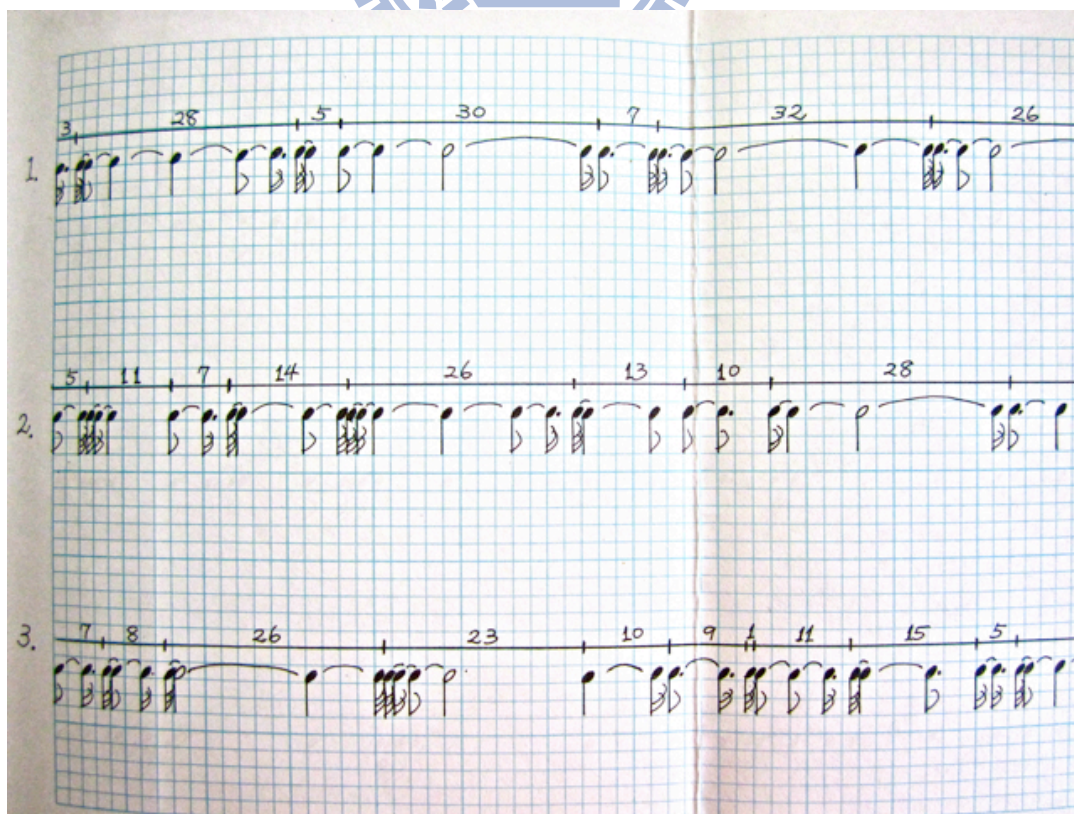 3 28 5 30 7 32 26
1.
5 11 7 14 26 13 10 28
2.
7 8 26 23 10 9 1 11 15 5
3.